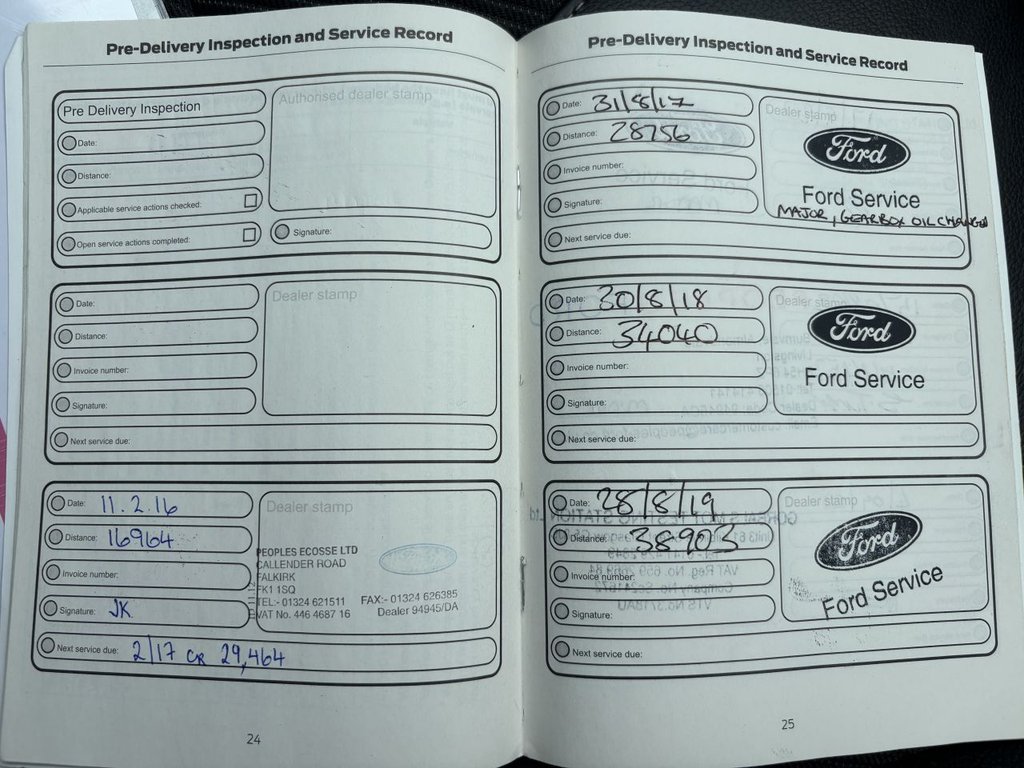 Pre-Delivery Inspection and Service Record
Pre Delivery Inspection
Authorised dealer stamp
Date:
Distance:
Applicable service actions checked:
Open service actions completed:
Signature:
Date:
Dealer stamp
Distance:
Invoice number:
Signature:
Next service due:
Date: 11.2.16
Dealer stamp
Distance: 16964
Invoice number:
Signature: JK
PEOPLES ECOSSE LTD
CALLENDER ROAD
FALKIRK
FK1 1SQ
TEL:- 01324 621511 FAX:- 01324 626385
VAT No. 446 4687 16 Dealer 94945/DA
Next service due: 2/17 OR 29,464
24
Pre-Delivery Inspection and Service Record
Date: 31/8/17
Dealer stamp
Distance: 28756
Invoice number:
Signature:
Ford
Ford Service
MAJOR, GEARBOX OIL CHANGED
Next service due:
Date: 30/8/18
Dealer stamp
Distance: 34040
Invoice number:
Signature:
Ford
Ford Service
Next service due:
Date: 28/8/19
Dealer stamp
Distance: 38903
Invoice number:
Signature:
Ford
Ford Service
Next service due:
25